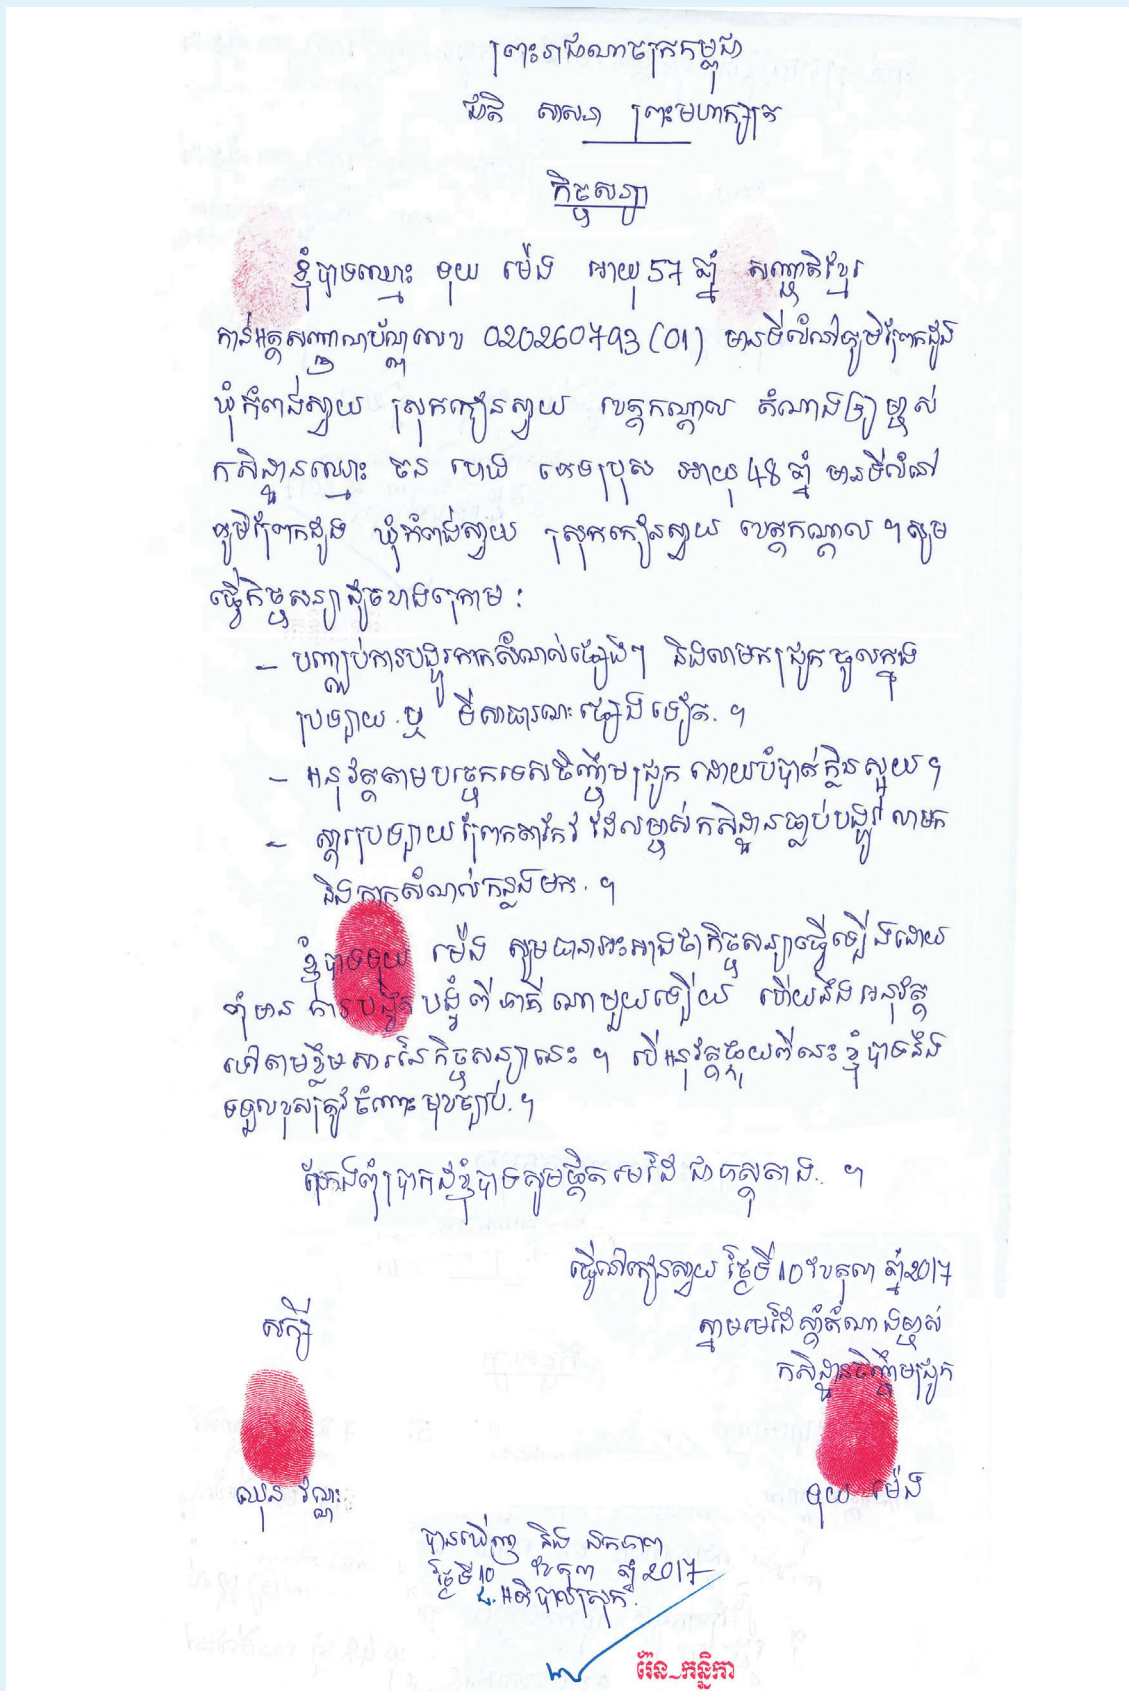 ព្រះរាជាណាចក្រកម្ពុជា
ជាតិ សាសនា ព្រះមហាក្សត្រ
កិច្ចសន្យា
ខ្ញុំបាទឈ្មោះ ទុយ ម៉េង អាយុ 57 ឆ្នាំ សញ្ជាតិខ្មែរ
កាន់អត្តសញ្ញាណប័ណ្ណលេខ 020260793 (01) មានទីលំនៅភូមិព្រែកដូង
ឃុំកំពង់ស្វាយ ស្រុកកៀនស្វាយ ខេត្តកណ្តាល តំណាងឲ្យម្ចាស់
កសិដ្ឋានឈ្មោះ ចន់ ហេង ភេទប្រុស អាយុ 48 ឆ្នាំ មានទីលំនៅ
ភូមិព្រែកដូង ឃុំកំពង់ស្វាយ ស្រុកកៀនស្វាយ ខេត្តកណ្តាល ។ សូម
ធ្វើកិច្ចសន្យាដូចខាងក្រោម :
- បញ្ឈប់ការបង្ហូរកាកសំណល់ផ្សេងៗ និងលាមកជ្រូកចូលក្នុង
ប្រឡាយ ឬ ទីសាធារណៈផ្សេងទៀត ។
- អនុវត្តតាមបច្ចេកទេសចិញ្ចឹមជ្រូក ដោយបំបាត់ក្លិនស្អុយ ។
- ស្តារប្រឡាយព្រែកតាកែវ ដែលម្ចាស់កសិដ្ឋានធ្លាប់បង្ហូរ លាមក
និងកាកសំណល់កន្លងមក ។
ខ្ញុំបាទទុយ ម៉េង សូមធានាអះអាងថាកិច្ចសន្យាធ្វើឡើងដោយ
ពុំមាន ការបង្ខិតបង្ខំពីភាគីណាមួយឡើយ ហើយនឹងអនុវត្ត
ទៅតាមខ្លឹមសារនៃកិច្ចសន្យានេះ ។ បើអនុវត្តផ្ទុយពីនេះខ្ញុំបាទនឹង
ទទួលខុសត្រូវចំពោះមុខច្បាប់ ។
ក្រែងពុំប្រាកដខ្ញុំបាទសូមផ្តិតមេដៃជាភស្តុតាង ។
ធ្វើនៅកៀនស្វាយ ថ្ងៃទី 10 ខែតុលា ឆ្នាំ 2017
ស្នាមមេដៃស្តាំតំណាងម្ចាស់
កសិដ្ឋានចិញ្ចឹមជ្រូក
សាក្សី
ឈុន វណ្ណៈ
ទុយ ម៉េង
បានឃើញ និង ឯកភាព
ថ្ងៃទី 10 ខែតុលា ឆ្នាំ 2017
ជ. អភិបាលស្រុក
រ៉ែន កន្និកា